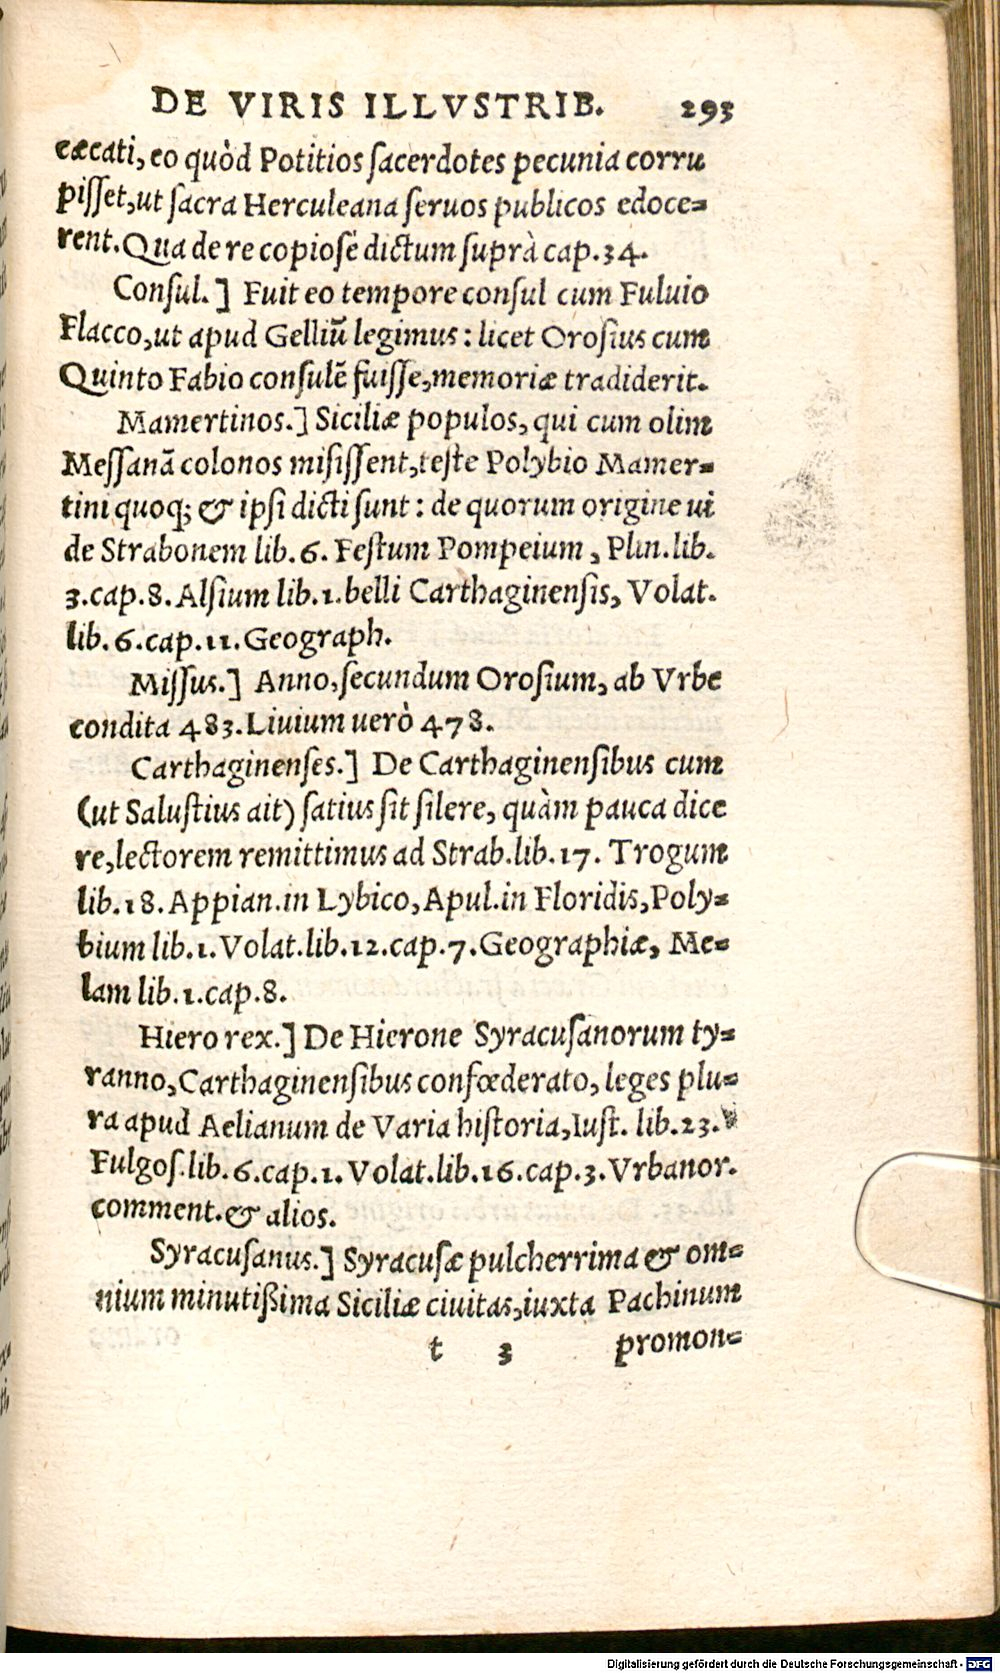 DE VIRIS ILLVSTRIB. 293
cæcati, eo quòd Potitios sacerdotes pecunia corru
pisset, ut sacra Herculeana seruos publicos edoce=
rent. Qua de re copiose dictum suprà cap. 34.
Consul.] Fuit eo tempore consul cum Fuluio
Flacco, ut apud Gelliū legimus: licet Orosius cum
Quinto Fabio consulē fuisse, memoriæ tradiderit.
Mamertinos.] Siciliæ populos, qui cum olim
Messanā colonos misissent, teste Polybio Mamer=
tini quoq; & ipsi dicti sunt: de quorum origine ui
de Strabonem lib. 6. Festum Pompeium, Plin. lib.
3. cap. 8. Alsium lib. 1. belli Carthaginensis, Volat.
lib. 6. cap. 11. Geograph.
Missus.] Anno, secundum Orosium, ab Vrbe
condita 483. Liuium uerò 478.
Carthaginenses.] De Carthaginensibus cum
(ut Salustius ait) satius sit silere, quàm pauca dice
re, lectorem remittimus ad Strab. lib. 17. Trogum
lib. 18. Appian. in Lybico, Apul. in Floridis, Poly=
bium lib. 1. Volat. lib. 12. cap. 7. Geographiæ, Me=
lam lib. 1. cap. 8.
Hiero rex.] De Hierone Syracusanorum ty=
ranno, Carthaginensibus confœderato, leges plu=
ra apud Aelianum de Varia historia, Iust. lib. 23.
Fulgos. lib. 6. cap. 1. Volat. lib. 16. cap. 3. Vrbanor.
comment. & alios.
Syracusanus.] Syracusæ pulcherrima & om=
nium minutißima Siciliæ ciuitas, iuxta Pachinum
t 3 promon=
Digitalisierung gefördert durch die Deutsche Forschungsgemeinschaft - DFG